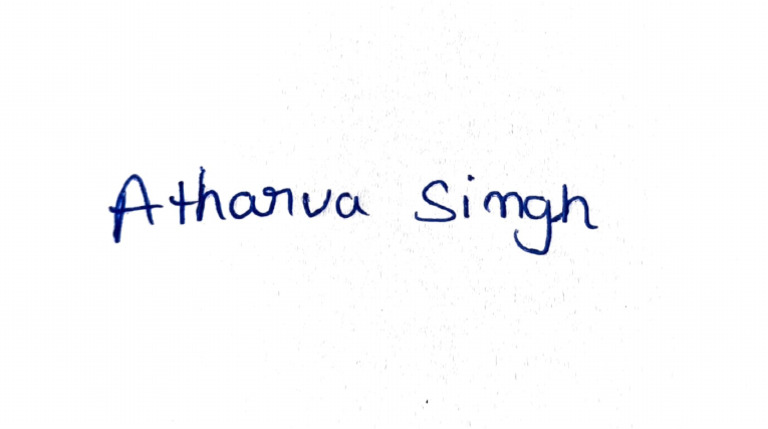 Atharva Singh